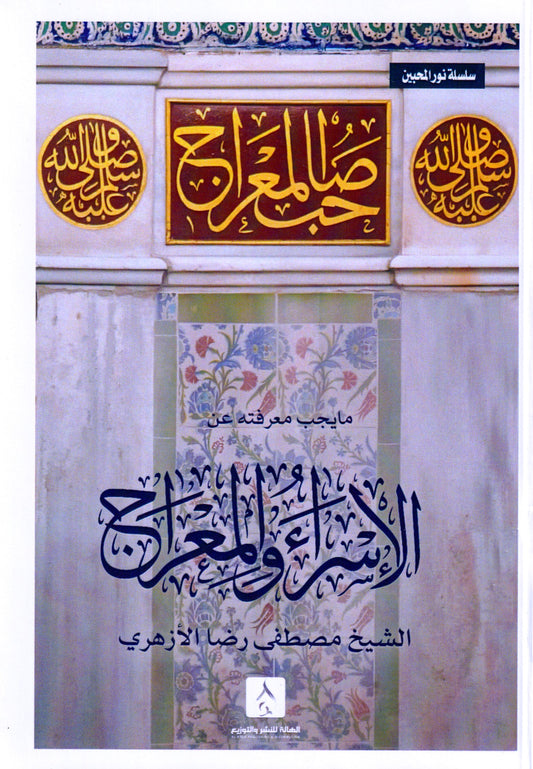 سلسلة نور المحبين
صاحب المعراج
صلى الله عليه وسلم
صلى الله عليه وسلم
مايجب معرفته عن
الإسراء والمعراج
الشيخ مصطفى رضا الأزهري
الهالة للنشر والتوزيع